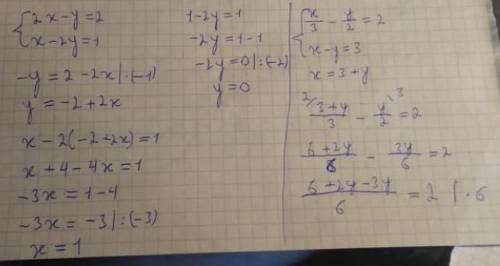 {2x-y=2
{x-2y=1
-y=2-2x|·(-1)
y=-2+2x
x-2(-2+2x)=1
x+4-4x=1
-3x=1-4
-3x=-3|:(-3)
x=1
1-2y=1
-2y=1-1
-2y=0|:(-2)
y=0
{x/3 - y/2 = 2
{x-y=3
x=3+y
2/ 3+y/3 - y/2 \3 = 2
6+2y/6 - 3y/6 = 2
6+2y-3y/6 = 2 | ·6